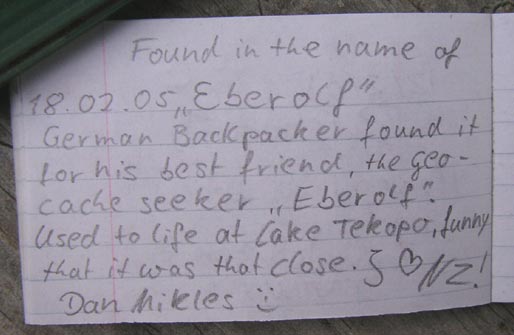 Found in the name of
18.02.05 „Eberolf"
German Backpacker found it
for his best friend, the geo-
cache seeker „Eberolf".
Used to life at Lake Tekopo, funny
that it was that close. I ♡ NZ!
Dan Mikles :)